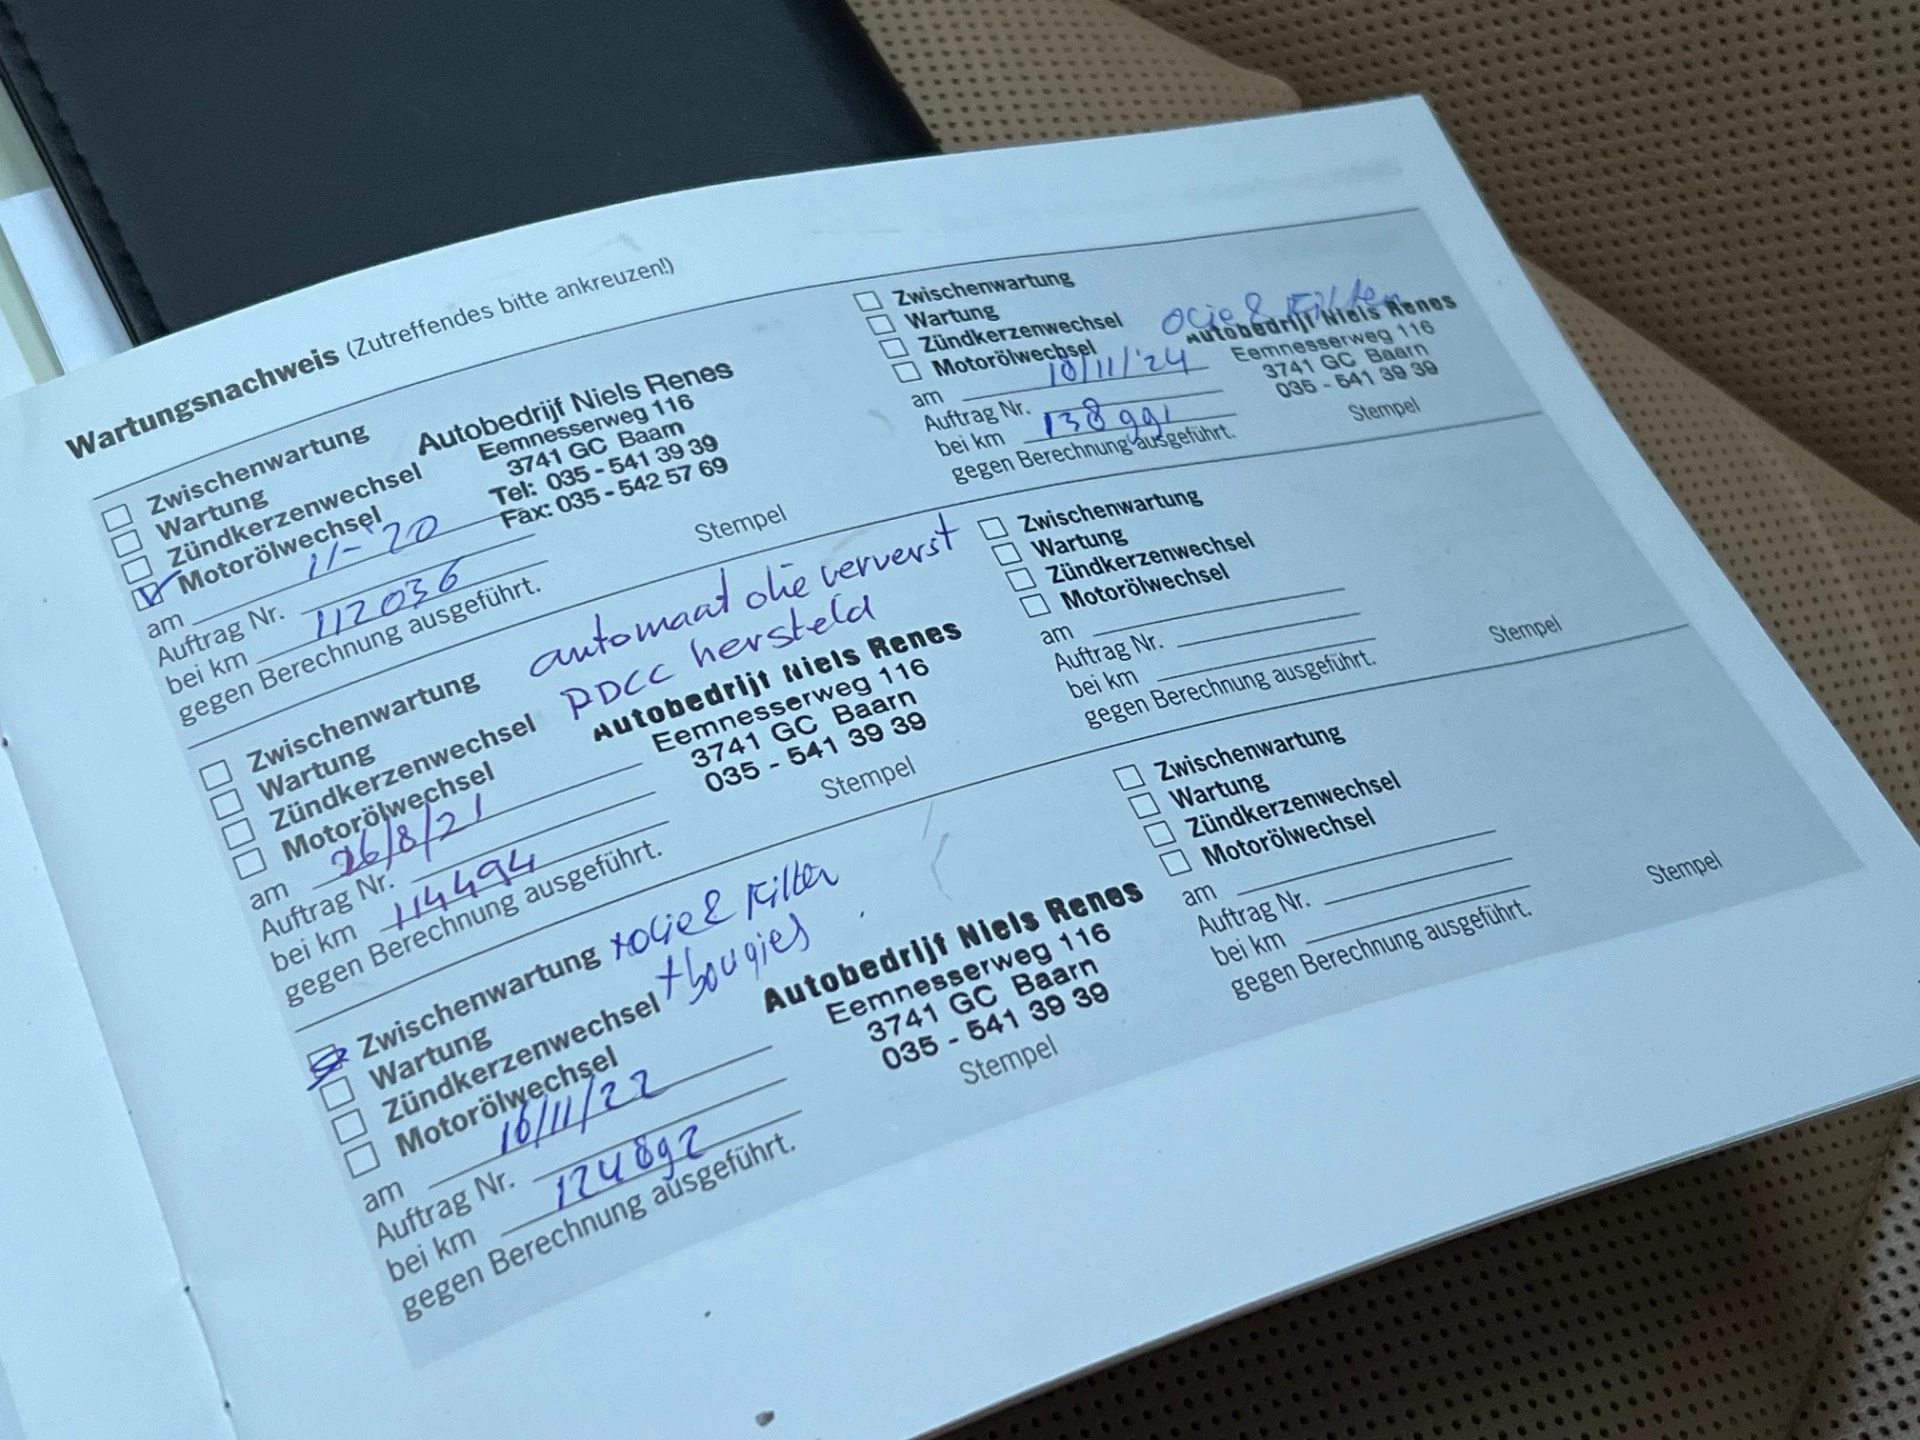 Wartungsnachweis (Zutreffendes bitte ankreuzen!)
Zwischenwartung
Wartung
Zündkerzenwechsel
Motorölwechsel
am 11-'20
Auftrag Nr.
bei km 112036
gegen Berechnung ausgeführt.
Autobedrijf Niels Renes
Eemnesserweg 116
3741 GC Baarn
Tel: 035 - 541 39 39
Fax: 035 - 542 57 69
Stempel
Zwischenwartung
Wartung
Zündkerzenwechsel
Motorölwechsel
am 26/8/21
Auftrag Nr.
bei km 114494
gegen Berechnung ausgeführt.
automaat olie ververst
PDCC hersteld
Autobedrijf Niels Renes
Eemnesserweg 116
3741 GC Baarn
035 - 541 39 39
Stempel
Zwischenwartung +olie & Filter
Wartung
Zündkerzenwechsel +bougies
Motorölwechsel
am 16/11/22
Auftrag Nr.
bei km 124892
gegen Berechnung ausgeführt.
Autobedrijf Niels Renes
Eemnesserweg 116
3741 GC Baarn
035 - 541 39 39
Stempel
Zwischenwartung
Wartung
Zündkerzenwechsel
Motorölwechsel
am 18/11/'24
Auftrag Nr.
bei km 138991
gegen Berechnung ausgeführt.
olie & Filter
Autobedrijf Niels Renes
Eemnesserweg 116
3741 GC Baarn
035 - 541 39 39
Stempel
Zwischenwartung
Wartung
Zündkerzenwechsel
Motorölwechsel
am
Auftrag Nr.
bei km
gegen Berechnung ausgeführt.
Stempel
Zwischenwartung
Wartung
Zündkerzenwechsel
Motorölwechsel
am
Auftrag Nr.
bei km
gegen Berechnung ausgeführt.
Stempel